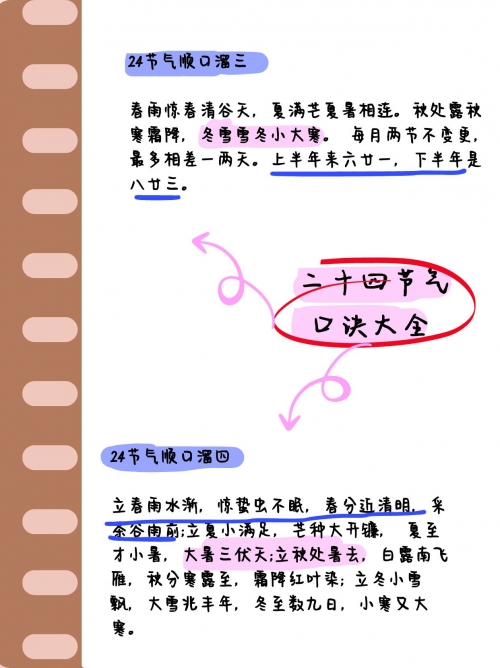 24节气顺口溜三
春雨惊春清谷天，夏满芒夏暑相连。秋处露秋
寒霜降，冬雪雪冬小大寒。 每月两节不变更，
最多相差一两天。上半年来六廿一，下半年是
八廿三。
二十四节气
口诀大全
24节气顺口溜四
立春雨水渐，惊蛰虫不眠，春分近清明，采
茶谷雨前;立夏小满足，芒种大开镰， 夏至
才小暑，大暑三伏天;立秋处暑去，白露南飞
雁，秋分寒露至，霜降红叶染；立冬小雪
飘，大雪兆丰年，冬至数九日，小寒又大
寒。